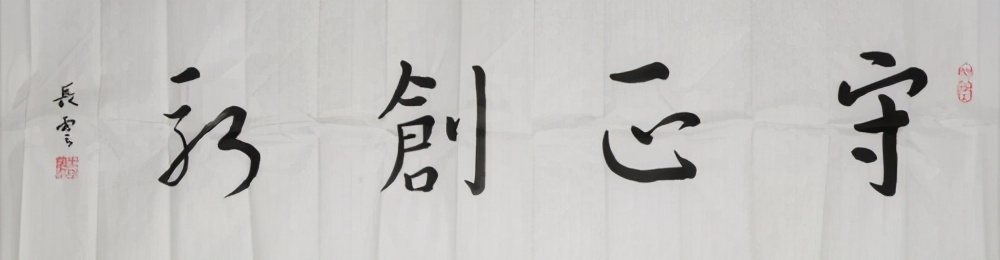 守正創新
長雲